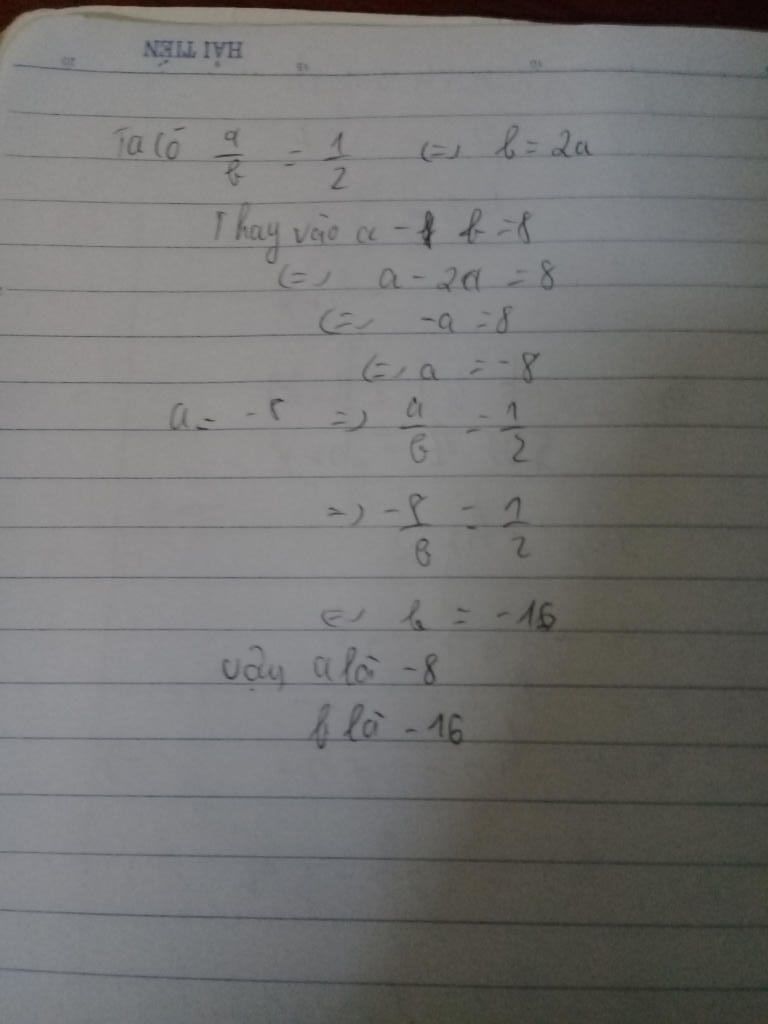 HẢI TIẾN
20 15 10
Ta có a/b = 1/2 <=> b = 2a
Thay vào a - b = 8
<=> a - 2a = 8
<=> -a = 8
<=> a = -8
a = -8 => a/b = 1/2
=> -8/b = 1/2
<=> b = -16
Vậy a là -8
b là -16